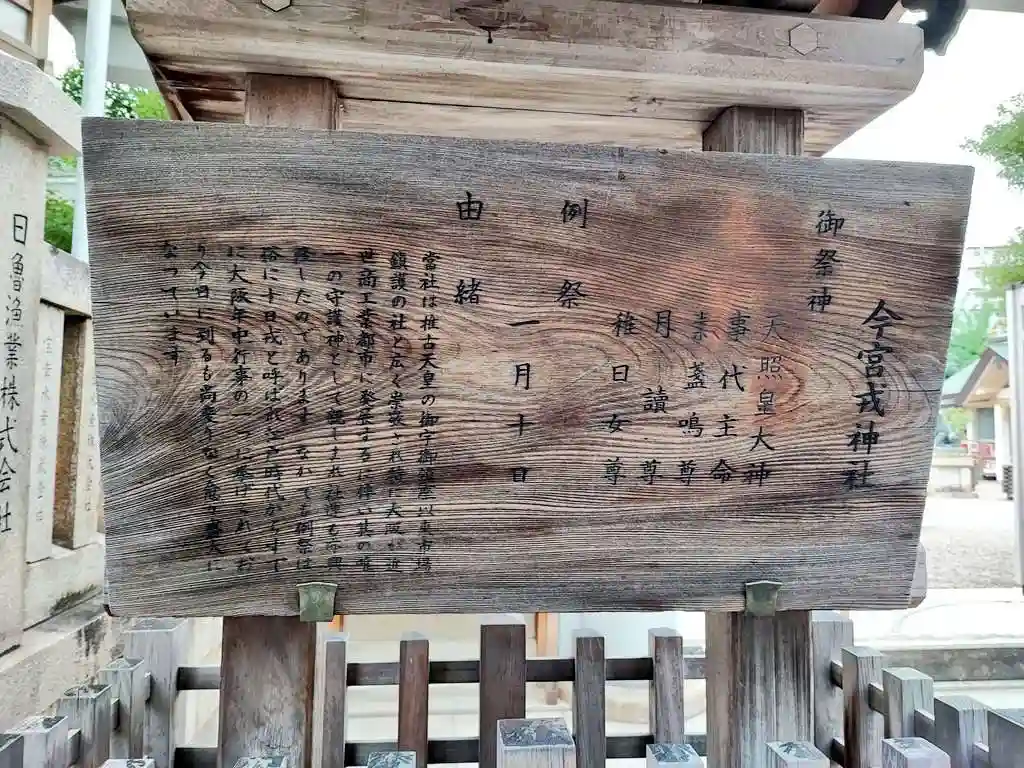 今宮戎神社
御祭神
天照皇大神
事代主命
素盞鳴尊
月讀尊
稚日女尊
例祭
一月十日
由緒
当社は推古天皇の御宇御鎮座以来市場
鎮護の社と広く崇敬され特に大阪が近
世商工業都市に発展するに伴い其の唯
一の守護神として親しまれ社運も亦興
隆したのであります なかでも例祭は
俗に十日戎と呼ばれ江戸時代からすで
に大阪年中行事の一つに数えられてお
り今日に到るも尚変りなく愈々
なっています
日魯漁業株式会社